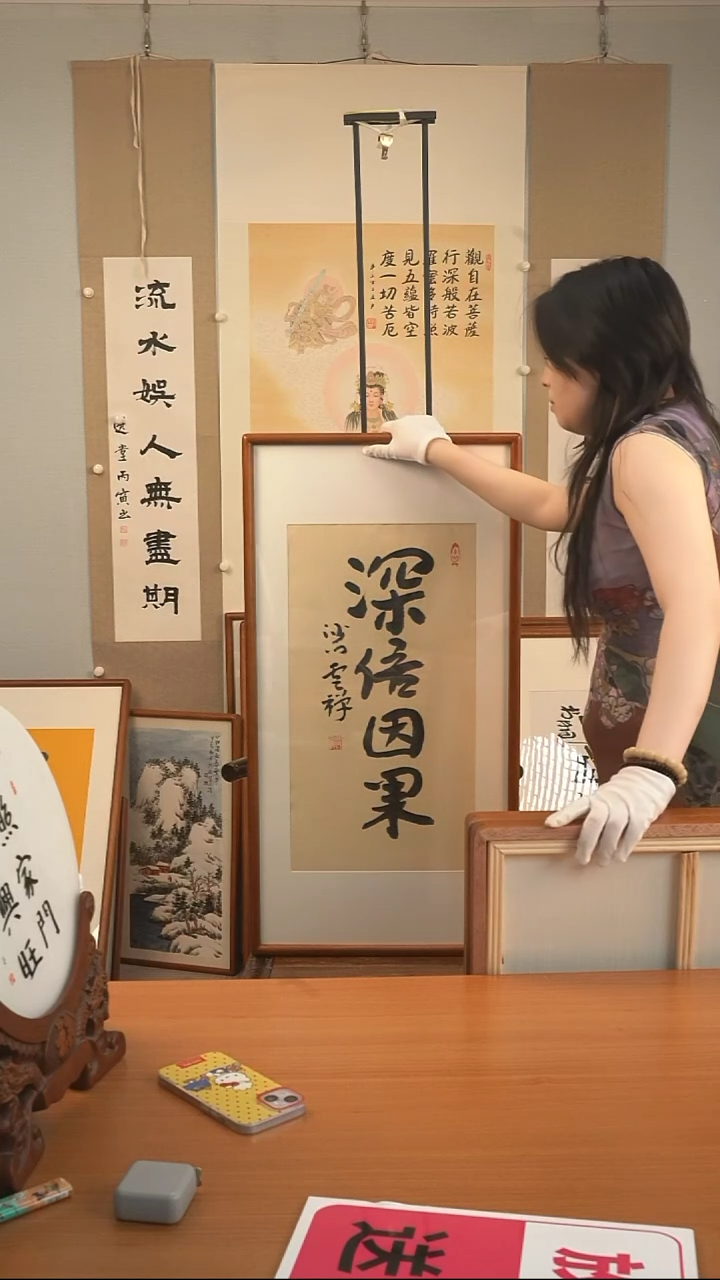 觀自在菩薩
行深般若波
羅蜜多時照
見五蘊皆空
度一切苦厄
流水娛人無盡期
深信因果
家門
興旺
送
放